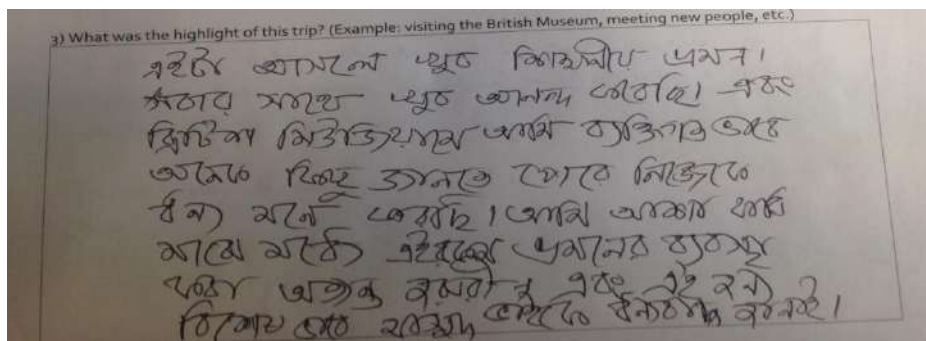 3) What was the highlight of this trip? (Example: visiting the British Museum, meeting new people, etc.)
এইটা আসলে খুব শিক্ষনীয় ভ্রমন।
সবার সাথে খুব আনন্দ করেছি। এবং
ব্রিটিশ মিউজিয়ামে আমি ব্যক্তিগত ভাবে
অনেক কিছু জানতে পেরে নিজেকে
ধন্য মনে করছি। আমি আশা করি
মাঝে মাঝে এইরকম ভ্রমনের ব্যবস্থা
করা অত্যন্ত জরুরী এবং এই জন্য
বিশেষ ভাবে ভাইকে ধন্যবাদ জানাই।